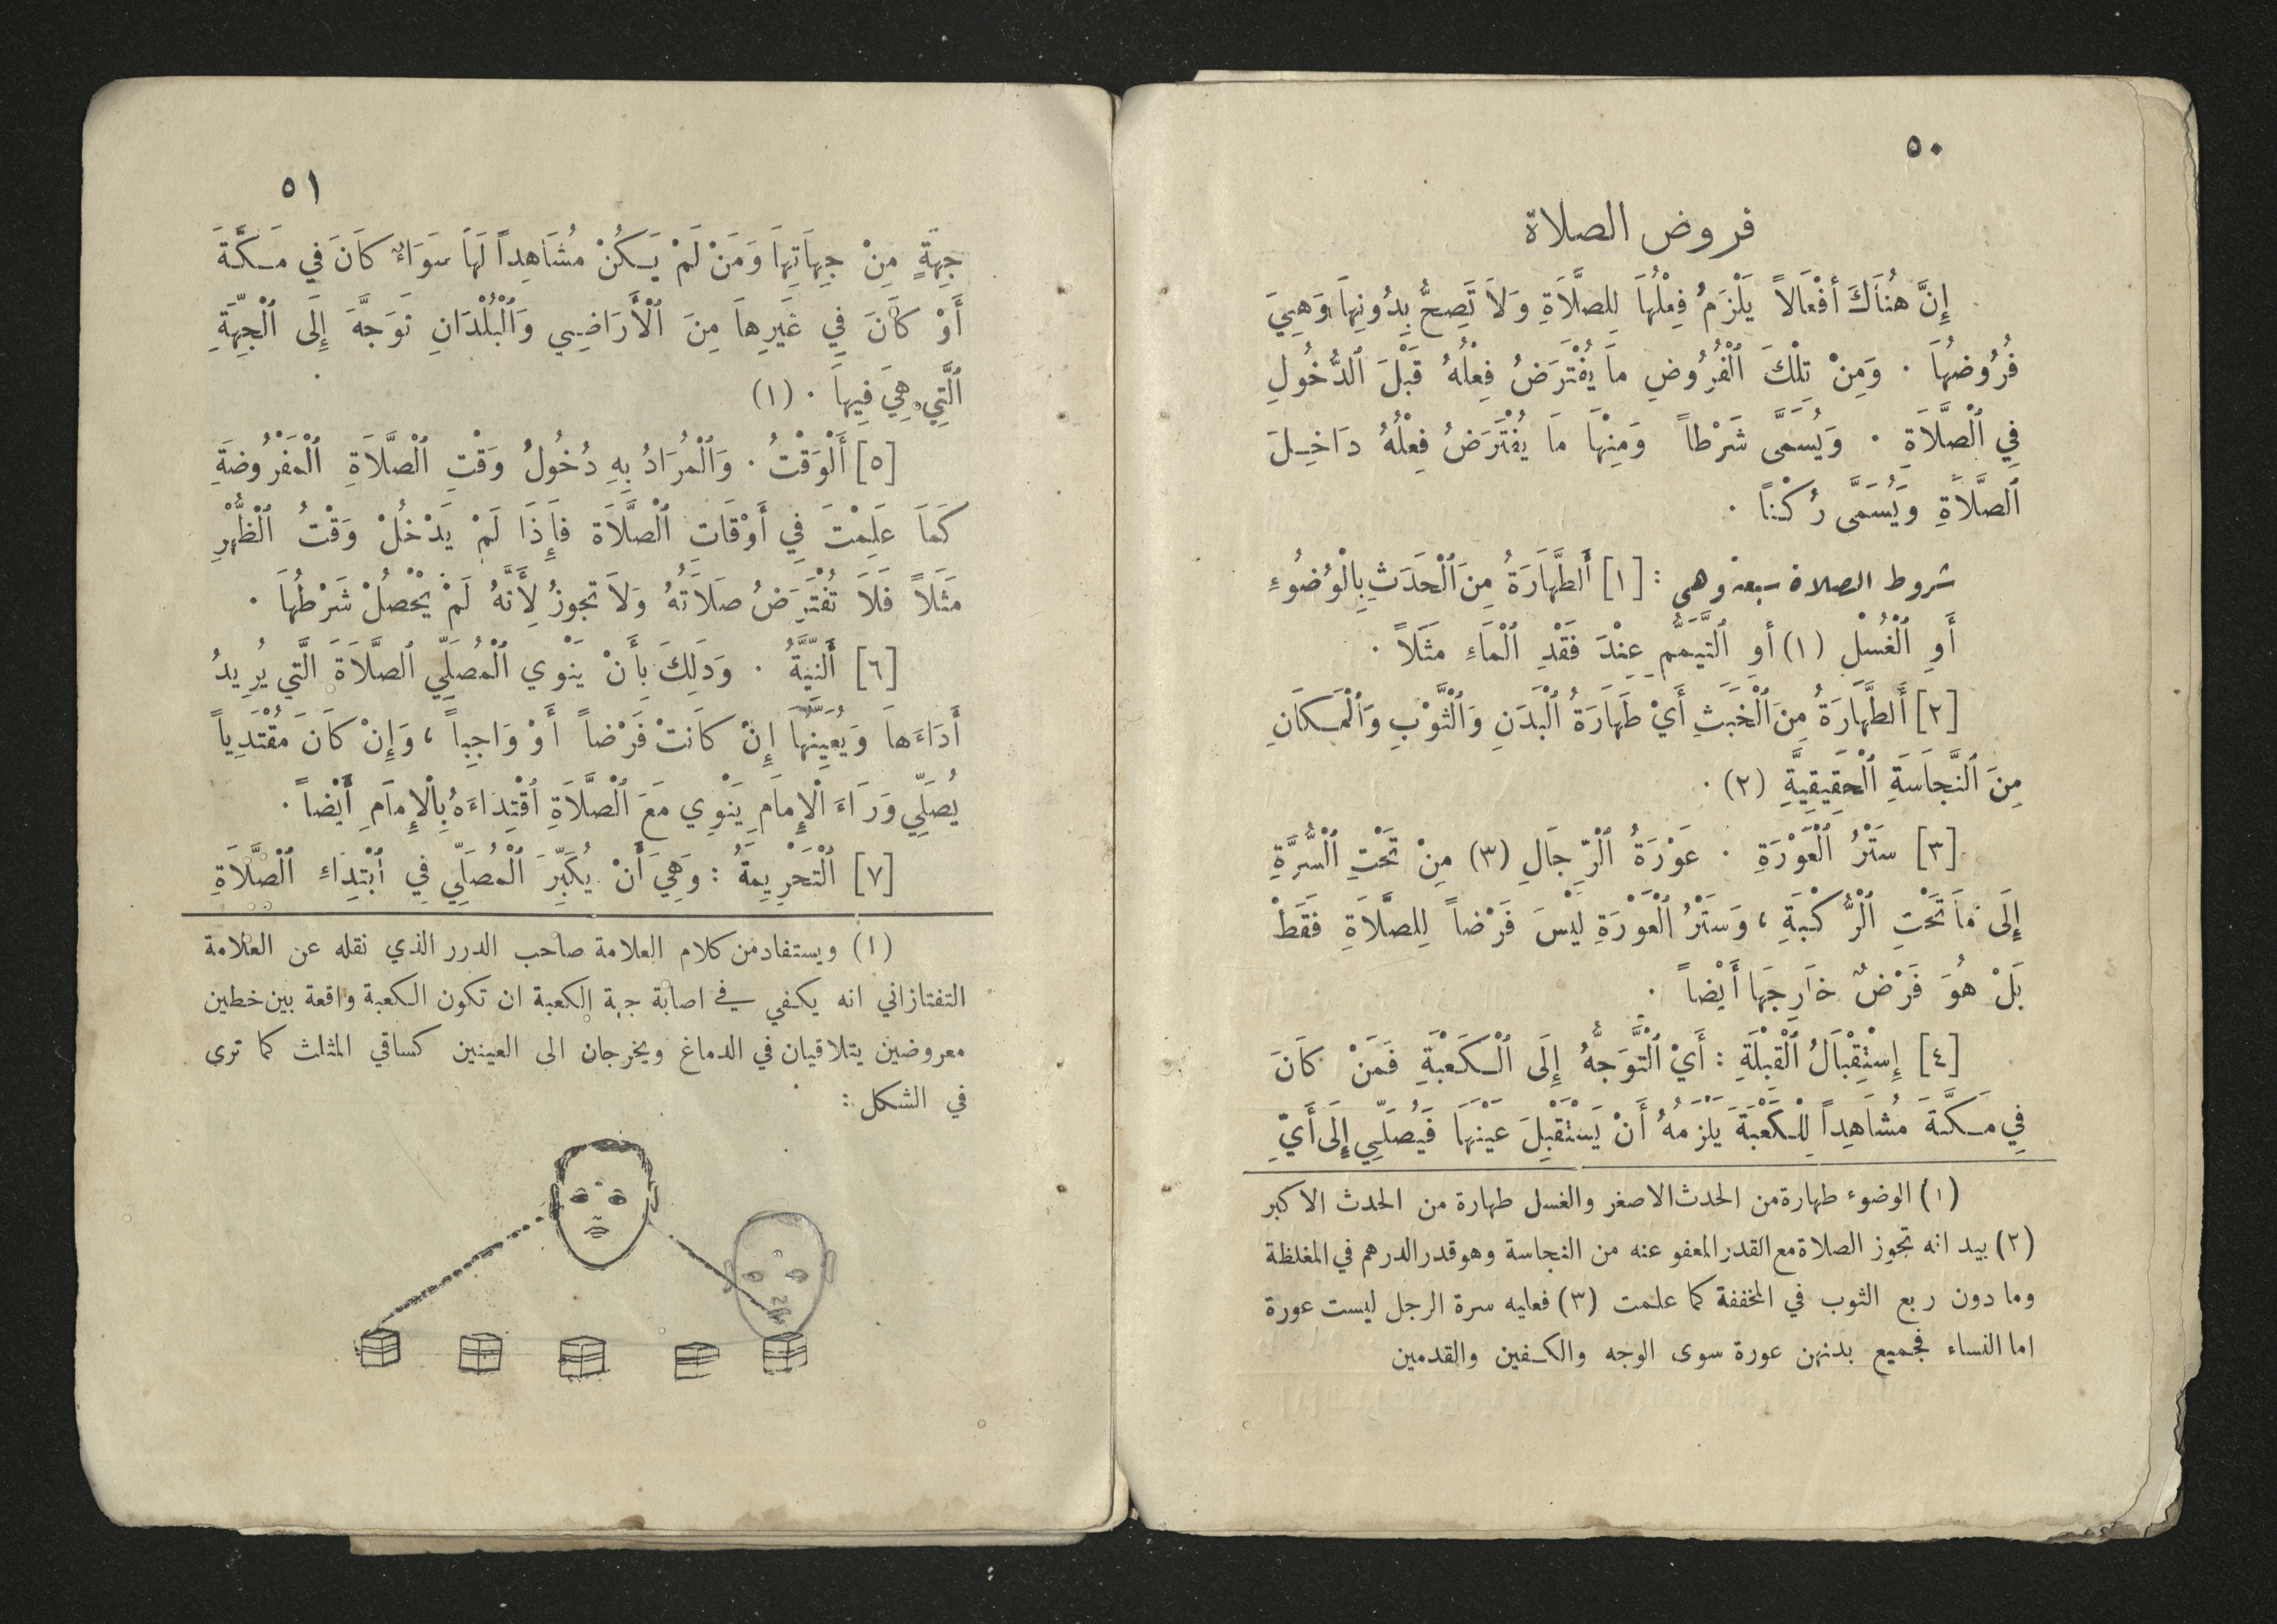 ٥٠
فروض الصلاة
إِنَّ هُنَاكَ أَفْعَالاً يَلْزَمُ فِعْلُهَا لِلصَّلَاةِ وَلَا تَصِحُّ بِدُونِهَا وَهِيَ
فُرُوضُهَا . وَمِنْ تِلْكَ ٱلْفُرُوضِ مَا يُفْتَرَضُ فِعْلُهُ قَبْلَ ٱلدُّخُولِ
فِي ٱلصَّلَاةِ . وَيُسَمَّى شَرْطاً وَمِنْهَا مَا يُفْتَرَضُ فِعْلُهُ دَاخِلَ
ٱلصَّلَاةِ وَيُسَمَّى رُكْنَاً .
شروط الصلاة سبعة وهى : [١] أَلطَّهَارَةُ مِنَ ٱلْحَدَثِ بِالْوُضُوءِ
أَوِ ٱلْغُسْلِ (١) أَوِ ٱلتَّيَمُّمِ عِنْدَ فَقْدِ ٱلْمَاءِ مَثَلاً .
[٢] أَلطَّهَارَةُ مِنَ ٱلْخَبَثِ أَيْ طَهَارَةُ ٱلْبَدَنِ وَٱلثَّوْبِ وَٱلْمَكَانِ
مِنَ ٱلنَّجَاسَةِ ٱلْحَقِيقِيَّةِ (٢) .
[٣] سَتْرُ ٱلْعَوْرَةِ . عَوْرَةُ ٱلرِّجَالِ (٣) مِنْ تَحْتِ ٱلسُّرَّةِ
إِلَى مَا تَحْتِ ٱلرُّكْبَةِ ، وَسَتْرُ ٱلْعَوْرَةِ لَيْسَ فَرْضاً لِلصَّلَاةِ فَقَطْ
بَلْ هُوَ فَرْضٌ خَارِجَهَا أَيْضاً .
[٤] إِسْتِقْبَالُ ٱلْقِبْلَةِ : أَيْ ٱلتَّوَجُّهُ إِلَى ٱلْكَعْبَةِ فَمَنْ كَانَ
فِي مَكَّةَ مُشَاهِداً لِلْكَعْبَةَ يَلْزَمُهُ أَنْ يَسْتَقْبِلَ عَيْنَهَا فَيُصَلِّي إِلَى أَيِّ
(١) الوضوء طهارة من الحدث الاصغر والغسل طهارة من الحدث الاكبر
(٢) بيد انه تجوز الصلاة مع القدر المعفو عنه من النجاسة وهو قدر الدرهم في المغلظة
وما دون ربع الثوب في المخففة كما علمت (٣) فعليه سرة الرجل ليست عورة
اما النساء فجميع بدنهن عورة سوى الوجه والكفين والقدمين
٥١
جِهَةٍ مِنْ جِهَاتِهَا وَمَنْ لَمْ يَكُنْ مُشَاهِداً لَهَا سَوَاءٌ كَانَ فِي مَكَّةَ
أَوْ كَانَ فِي غَيْرِهَا مِنَ ٱلْأَرَاضِي وَٱلْبُلْدَانِ تَوَجَّهَ إِلَى ٱلْجِهَةِ
ٱلَّتِي هِيَ فِيهَا . (١)
[٥] أَلْوَقْتُ . وَٱلْمُرَادُ بِهِ دُخُولُ وَقْتِ ٱلصَّلَاةِ ٱلْمَفْرُوضَةِ
كَمَا عَلِمْتَ فِي أَوْقَاتِ ٱلصَّلَاة فَإِذَا لَمْ يَدْخُلْ وَقْتُ ٱلظُّهْرِ
مَثَلاً فَلَا تُفْتَرَضُ صَلَاتُهُ وَلَا تجوزُ لِأَنَّهُ لَمْ يَحْصُلْ شَرْطُهَا .
[٦] أَلنِّيَّةُ . وَذَلِكَ بِأَنْ يَنْوِي ٱلْمُصَلِّي ٱلصَّلَاةَ الَّتي يُرِيدُ
أَدَاءَهَا وَيُعَيِّنُهَا إِنْ كَانَتْ فَرْضاً أَوْ وَاجِباً ، وَإِنْ كَانَ مُقْتَدِياً
يُصَلِّي وَرَاءَ الْإِمَامِ يَنْوِي مَعَ ٱلصَّلَاةِ ٱقْتِدَاءَهُ بِالْإِمَامِ أَيْضاً .
[٧] ٱلْتَحْرِيمَةُ : وَهِيَ أَنْ يُكَبِّرَ ٱلْمُصَلِّي فِي ٱبْتِدَاءِ ٱلْصَّلَاةِ
(١) ويستفاد من كلام العلامة صاحب الدرر الذي نقله عن العلامة
التفتازاني انه يكفي في اصابة جهة الكعبة ان تكون الكعبة واقعة بين خطين
معروضين يتلاقيان في الدماغ ويخرجان الى العينين كساقي المثلث كما ترى
في الشكل :